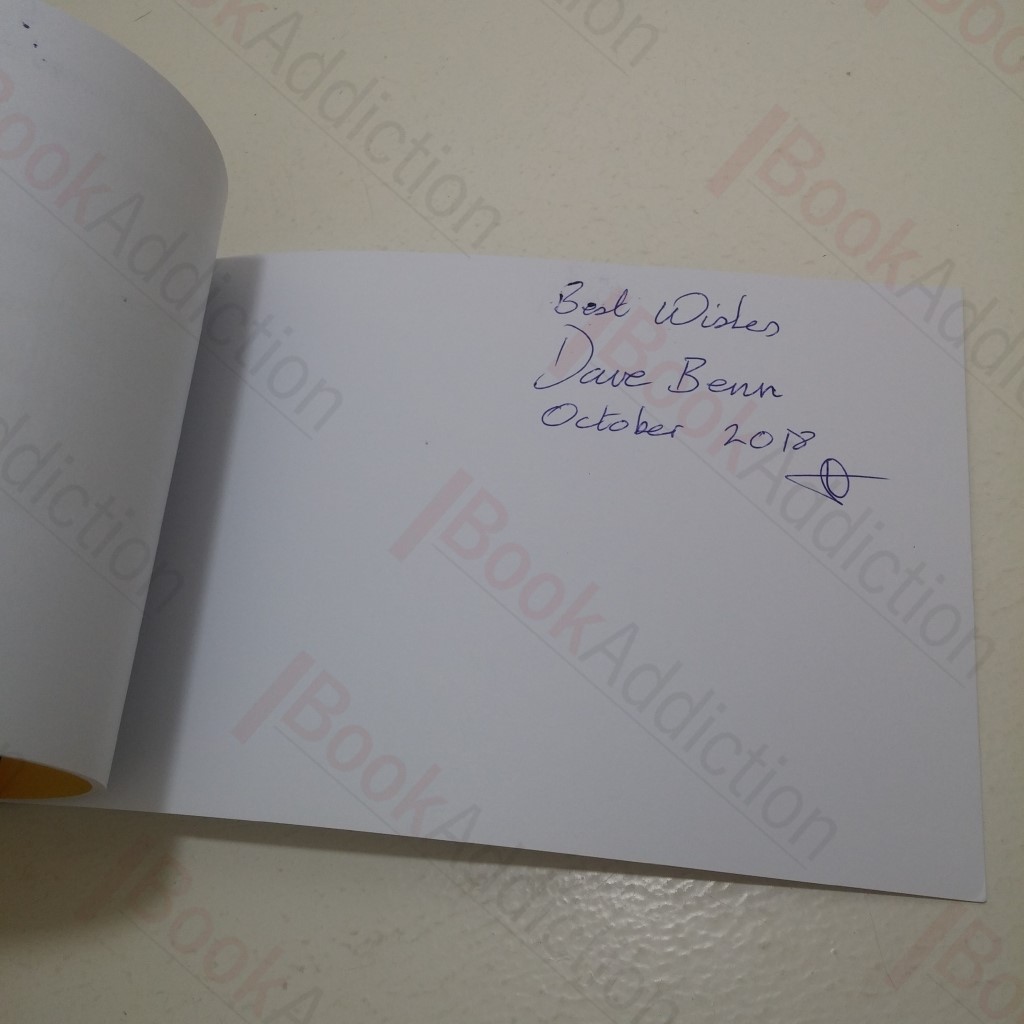 Best Wishes
Dave Benn
October 2018
BookAddiction
BookAddiction
BookAddiction
BookAddiction
BookAddiction
BookAddiction